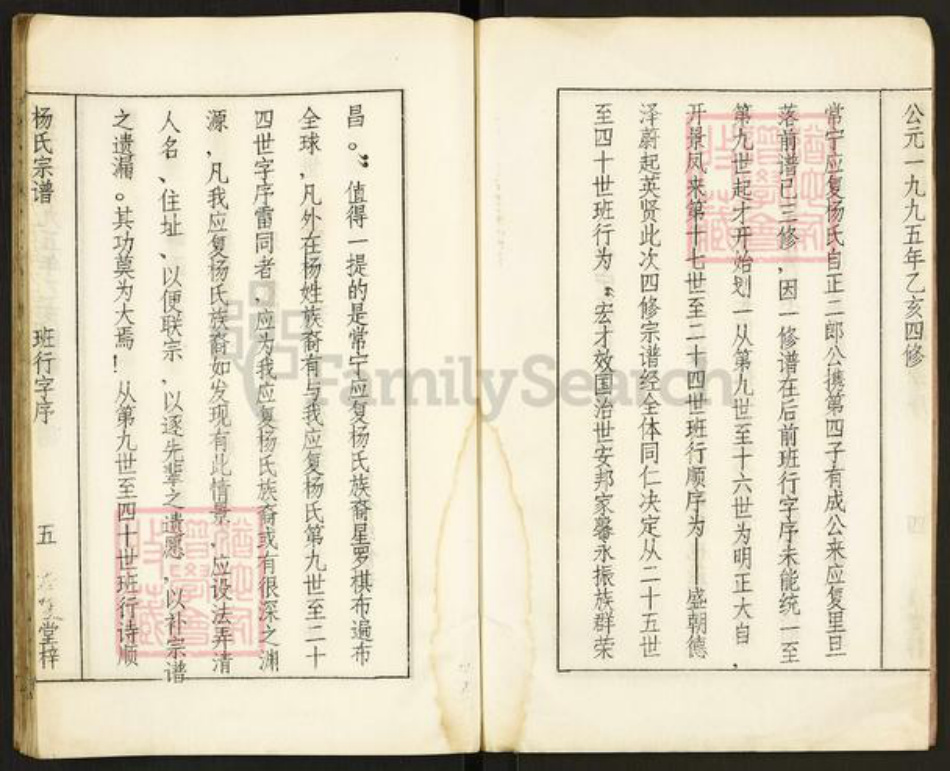 公元一九九五年乙亥四修
常宁应复杨氏自正二郎公携第四子有成公来应复里旦
落前谱已三修，因一修谱在后前班行字序未能统一至
第九世起才开始划一从第九世至十六世为明正大自，
开景凤来第十七世至二十四世班行顺序为——盛朝德
泽蔚起英贤此次四修宗谱经全体同仁决定从二十五世
至四十世班行为“宏才效国治世安邦家馨永振族群荣
昌。”值得一提的是常宁应复杨氏族裔星罗棋布遍布
全球，凡外在杨姓族裔有与我应复杨氏第九世至二十
四世字序雷同者，应为我应复杨氏族裔或有很深之渊
源，凡我应复杨氏族裔如发现有此情景，应设法弄清
人名、住址、以便联宗，以逐先辈之遗愿，以补宗谱
之遗漏。其功莫为大焉！从第九世至四十世班行诗顺
杨氏宗谱 班行字序 五 堂梓
FamilySearch